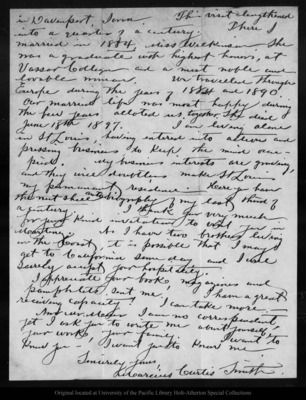 in Davenport, Iowa. This visit lengthened
into a quarter of a century. There I
married in 1884, Miss Wickman. She
was a graduate with highest honors, at
Vassar College and a most noble and
lovable woman. We travelled through
Europe during the years of 1889 and 1890.
Our married life was most happy during
the few years allotted us together. She died
June 18th 1897. I am living alone
in St Louis, having interests active and
pressing business to keep the mind occu-
pied. My business interests are growing,
and they will doubtless make St Louis
my permanent residence. Here you have
the next sheet and biography of my last third of
a century. I thank you very much
for your kind invitation to visit you in
Martinez. As I have two brothers living
on the Coast, it is possible that I may
get to California some day and I will
surely accept your hospitality.
I appreciate your books, magazines and
pamphlets sent me. I have a great
receiving capacity. I can take more
I am no correspondent,
yet I ask you to write me about yourself,
your work, your family. I want to
know you. I want you to know me.
Sincerely yours,
Curtis Smith.
Original located at University of the Pacific Library Holt-Atherton Special Collections